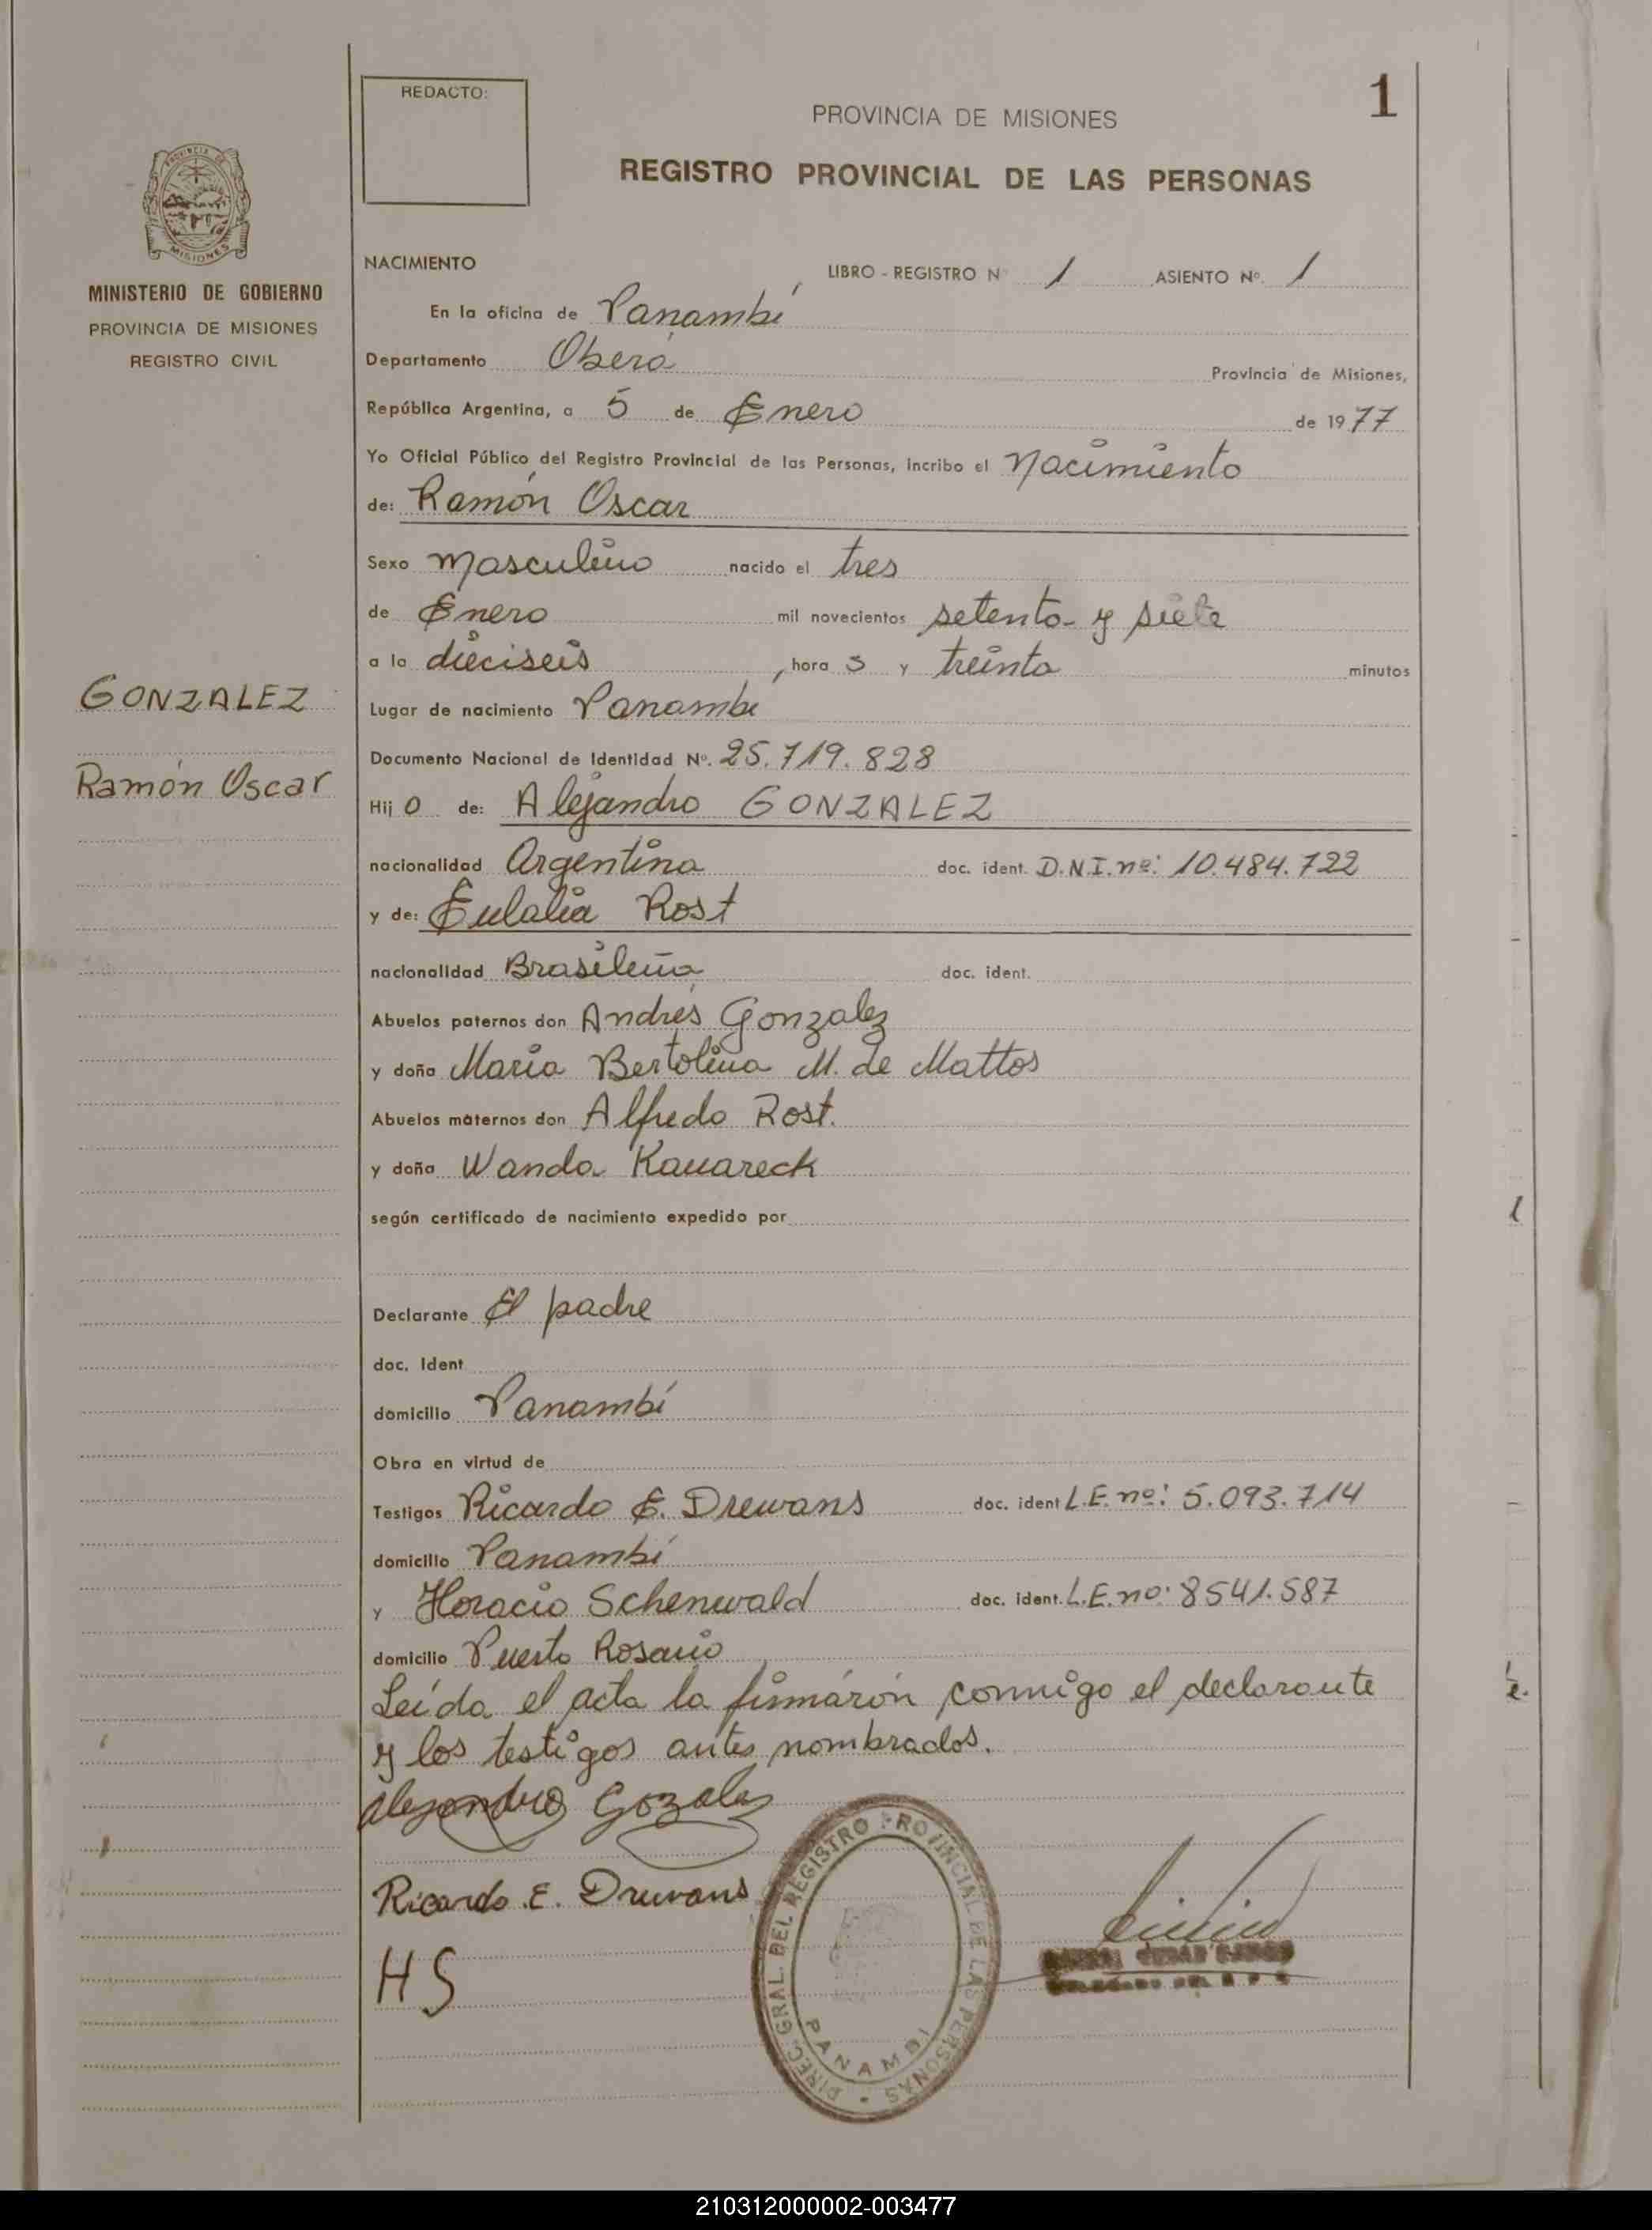 REDACTO:
1
PROVINCIA DE MISIONES
REGISTRO PROVINCIAL DE LAS PERSONAS
PROVINCIA DE
MISIONES
MINISTERIO DE GOBIERNO
PROVINCIA DE MISIONES
REGISTRO CIVIL
NACIMIENTO LIBRO - REGISTRO Nº 1 ASIENTO Nº. 1
En la oficina de Panambí
Departamento Oberá Provincia de Misiones,
República Argentina, a 5 de Enero de 1977
Yo Oficial Público del Registro Provincial de las Personas, incribo el Nacimiento
de: Ramón Oscar
Sexo Masculino nacido el tres
de Enero mil novecientos setenta y siete
a la dieciseis, hora s y treinta minutos
GONZALEZ
Lugar de nacimiento Panambí
Ramón Oscar
Documento Nacional de Identidad Nº. 25.719.828
Hij o de: Alejandro GONZALEZ
nacionalidad Argentina doc. ident. D.N.I. nº: 10.484.722
y de: Eulalia Rost
nacionalidad Brasileña doc. ident.
Abuelos paternos don Andrés Gonzalez
y doña Maria Bertolina M. de Mattos
Abuelos maternos don Alfredo Rost.
y doña Wanda Kauareck
según certificado de nacimiento expedido por
Declarante El padre
doc. Ident
domicilio Panambí
Obra en virtud de
Testigos Ricardo E. Drewans doc. ident L.E. nº: 5.093.714
domicilio Panambí
y Horacio Schenwald doc. ident. L.E. nº: 8541.587
domicilio Puerto Rosario
Leída el acta la firmarón conmigo el declarante
y los testigos antes nombrados.
Alejandro Gozalez
Ricardo E. Druwans
HS
DIREC. GRAL. DEL REGISTRO PROVINCIAL DE LAS PERSONAS
PANAMBI
210312000002-003477